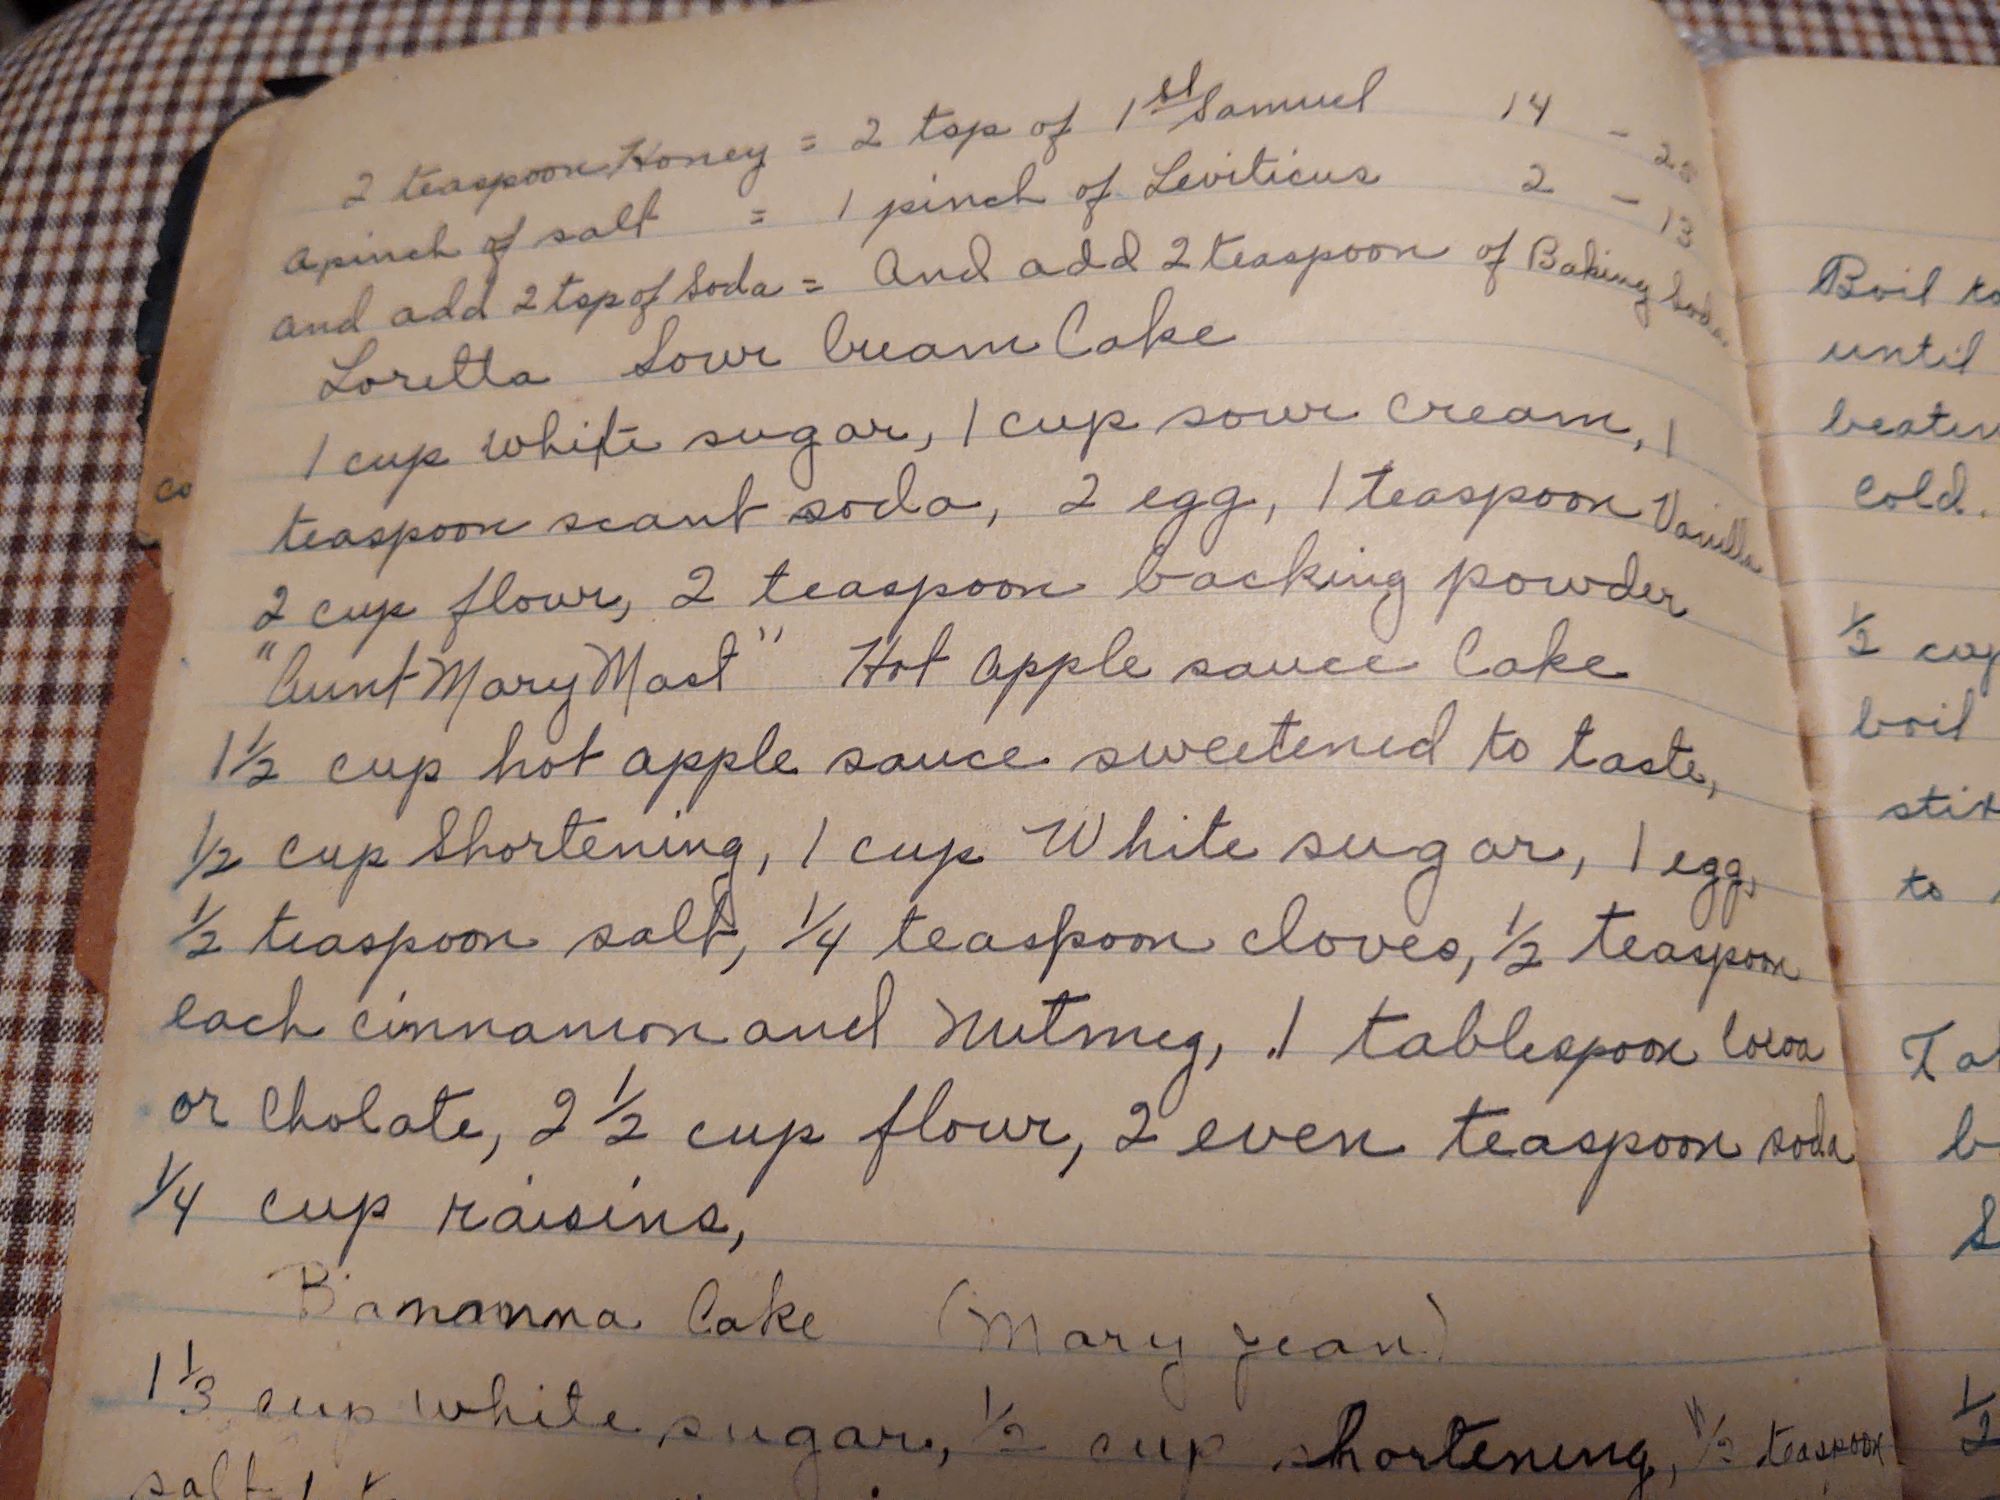 2 teaspoon Honey = 2 tsp of 1st Samuel 14 - 25
a pinch of salt = 1 pinch of Leviticus 2 - 13
and add 2 tsp of Soda = And add 2 teaspoon of Baking Soda
Loretta Sour Cream Cake
1 cup white sugar, 1 cup sour cream, 1
teaspoon scant soda, 2 egg, 1 teaspoon Vanilla
2 cup flour, 2 teaspoon backing powder
"Aunt Mary Mast" Hot apple sauce Cake
1 1/2 cup hot apple sauce sweetened to taste,
1/2 cup Shortening, 1 cup White sugar, 1 egg,
1/2 teaspoon salt, 1/4 teaspoon cloves, 1/2 teaspoon
each cinnamon and Nutmeg, 1 tablespoon Cocoa
or Cholate, 2 1/2 cup flour, 2 even teaspoon soda
1/4 cup raisins,
Bananna Cake (Mary Jean)
1 1/3 cup white sugar, 1/2 cup shortening, 1/2 teaspoon
salt
co
Boil
until
Cold.
1/2
boil
to
1/2